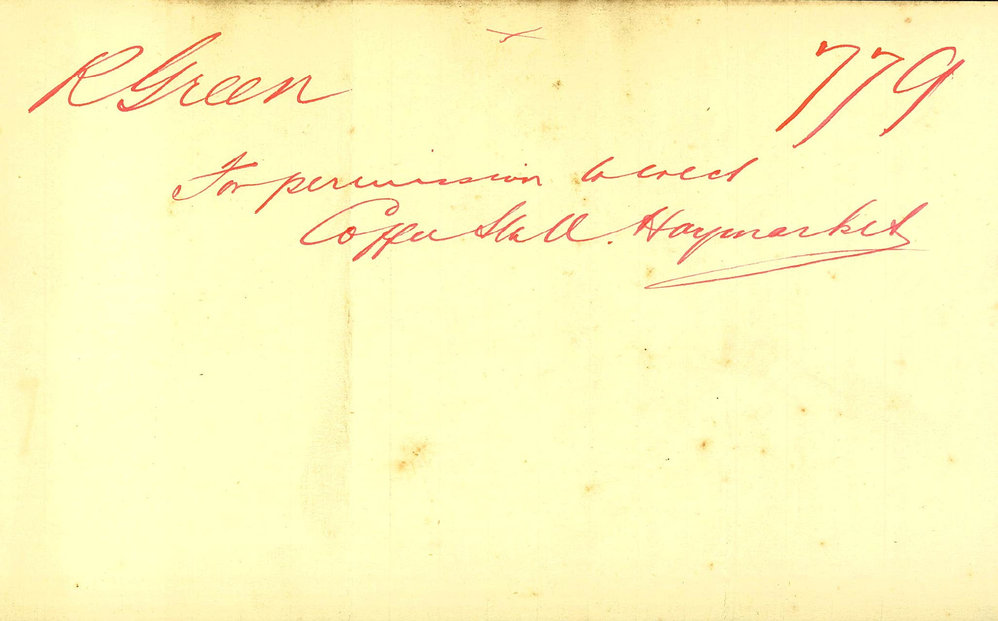 R Green 779
For permission to erect
Coffee Stall. Haymarket